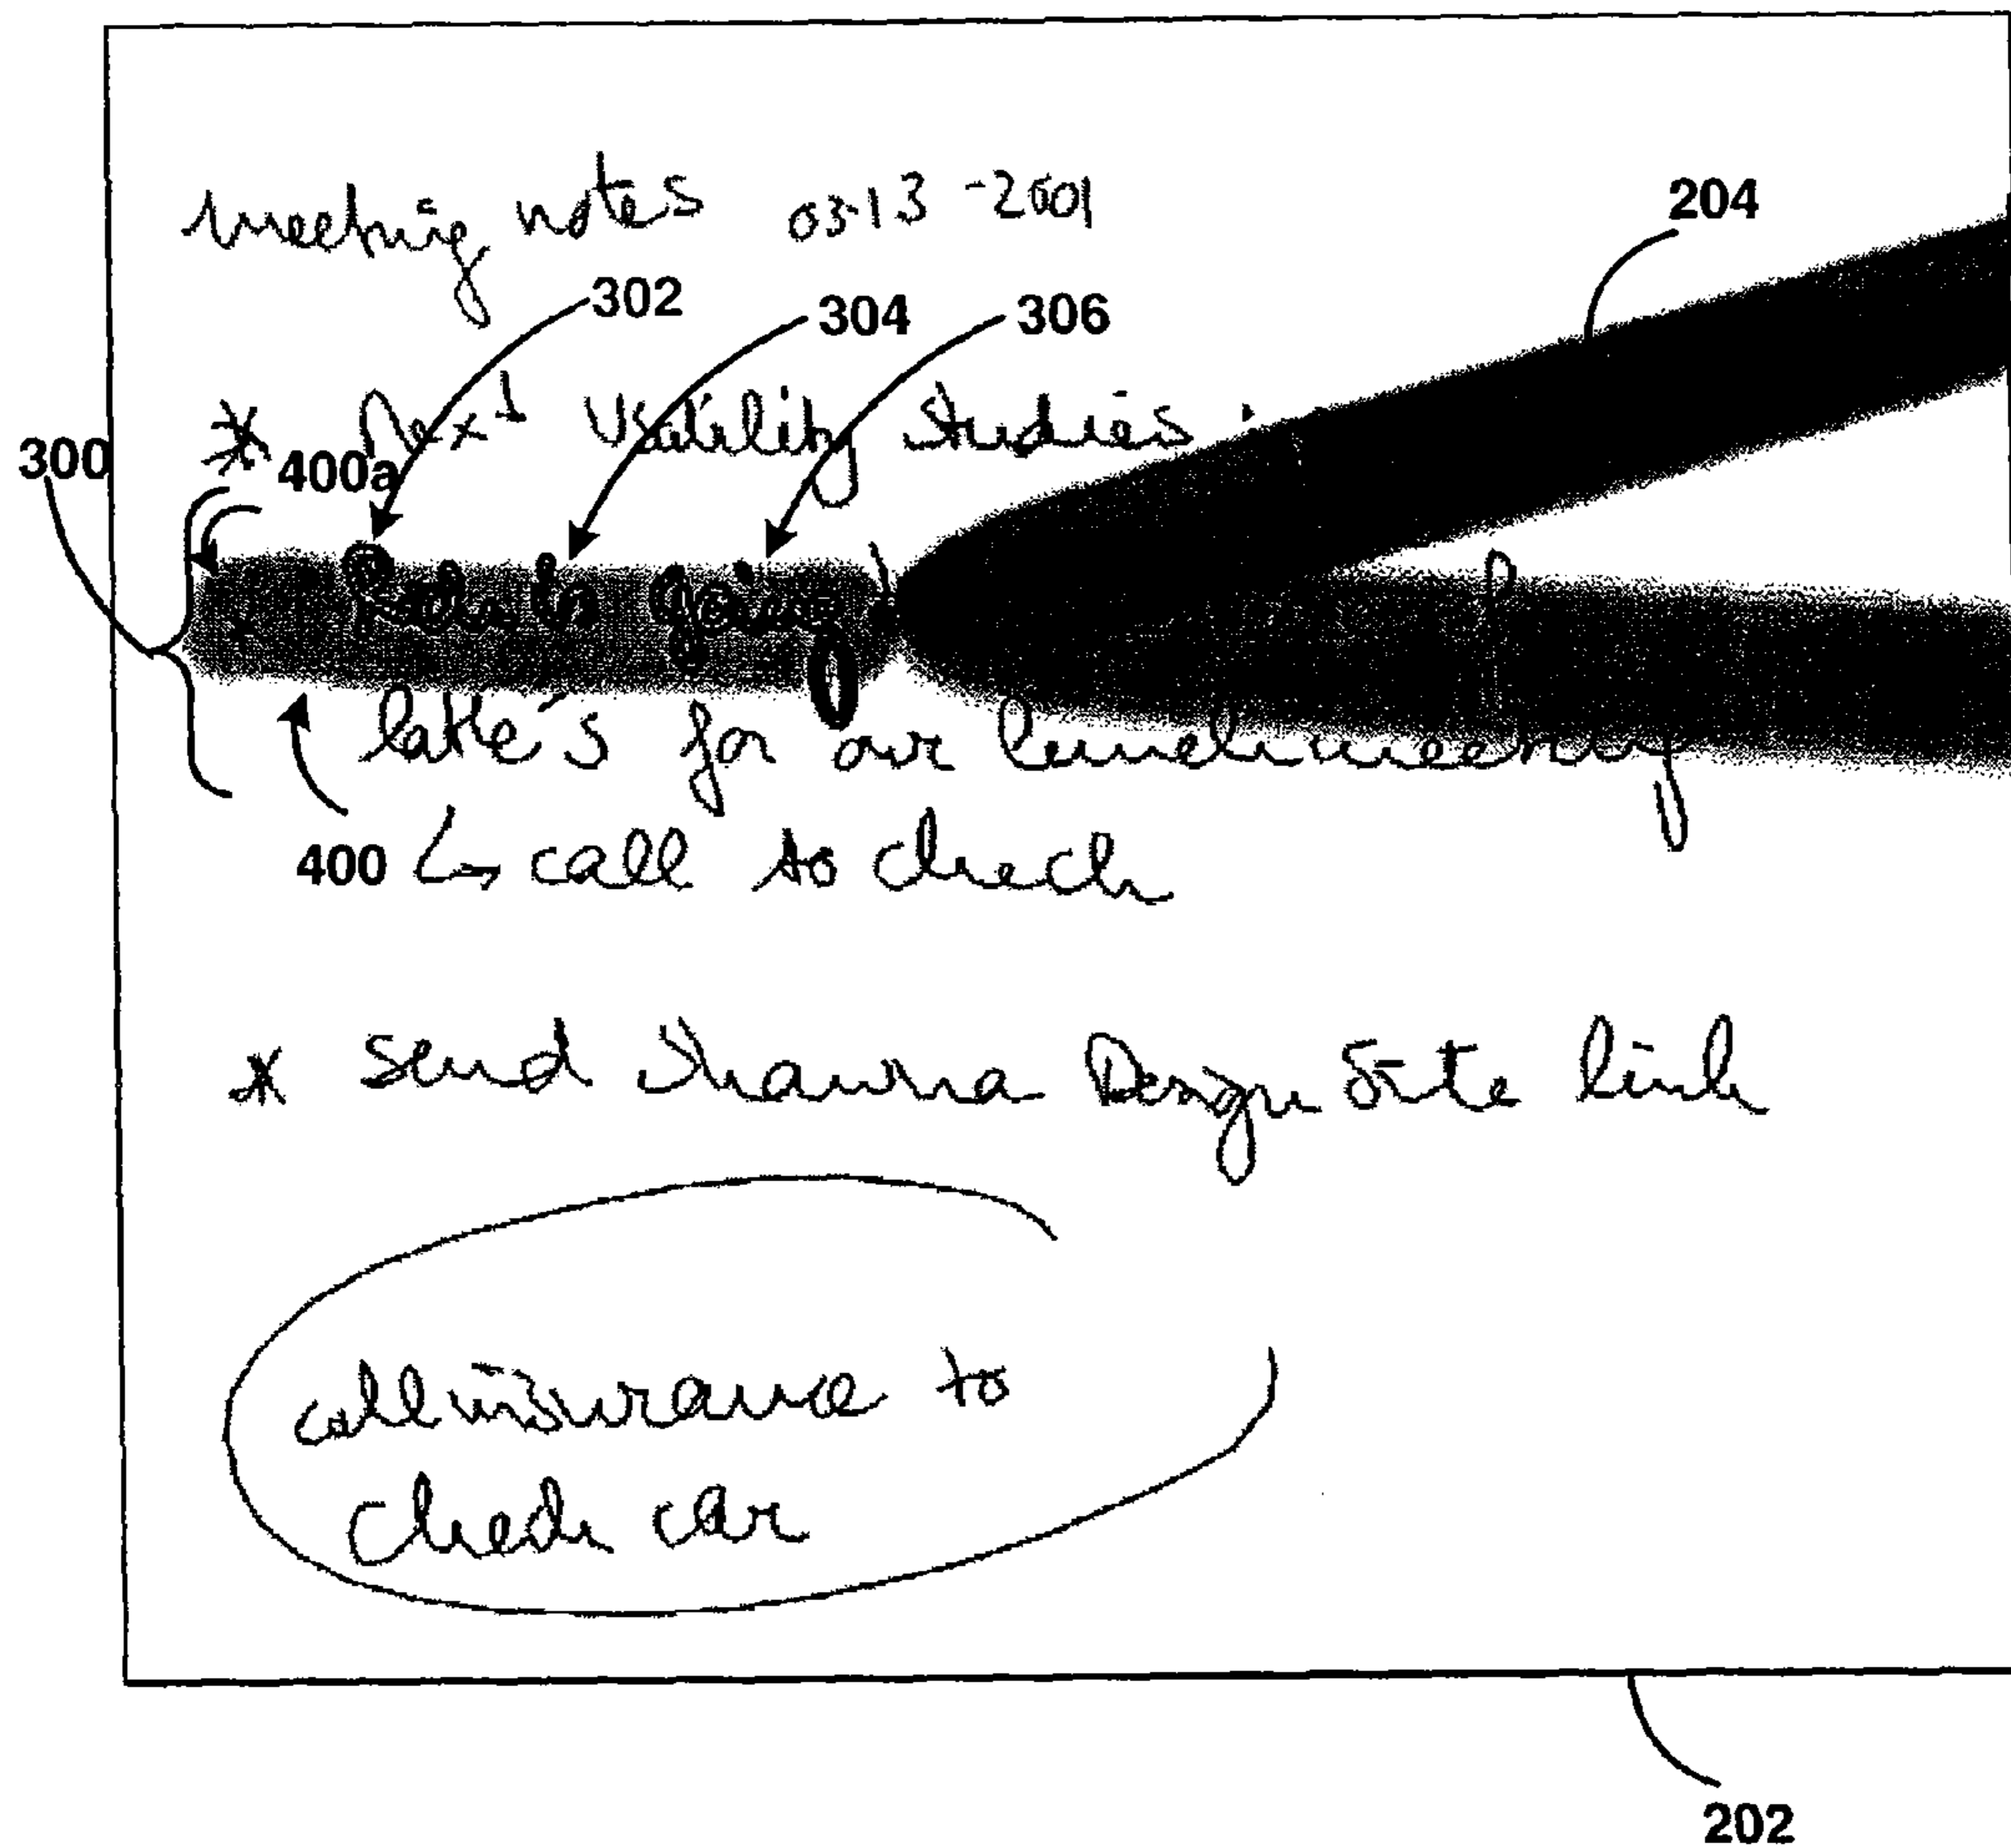 meeting notes 03-13-2001
204
302
304
306
* Next Usability Studies :
300
400a
is going
latte's for our lunch meeting
400 ↳ call to check
* Send Shawna Design Site link
call insurance to
check car
202